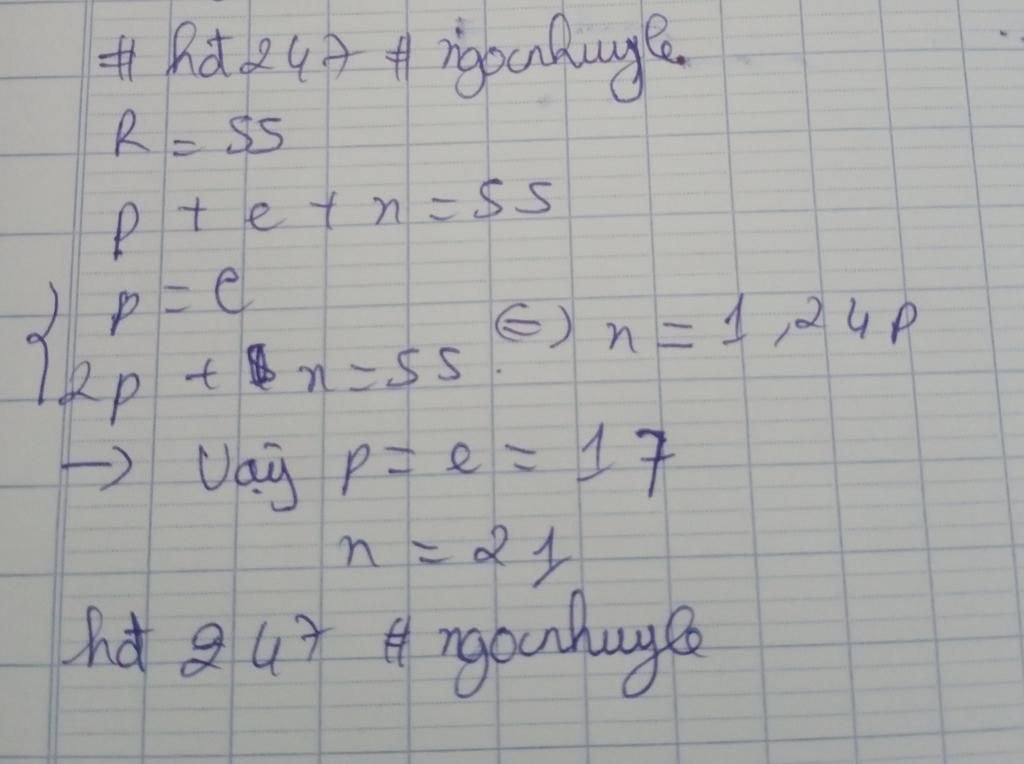 # hđ 247 # ngocnhuyle.
R = 55
p + e + n = 55
p = e
2p + n = 55. (=) n = 1,24p
→ Vậy p = e = 17
n = 21
hđ 247 # ngocnhuyle